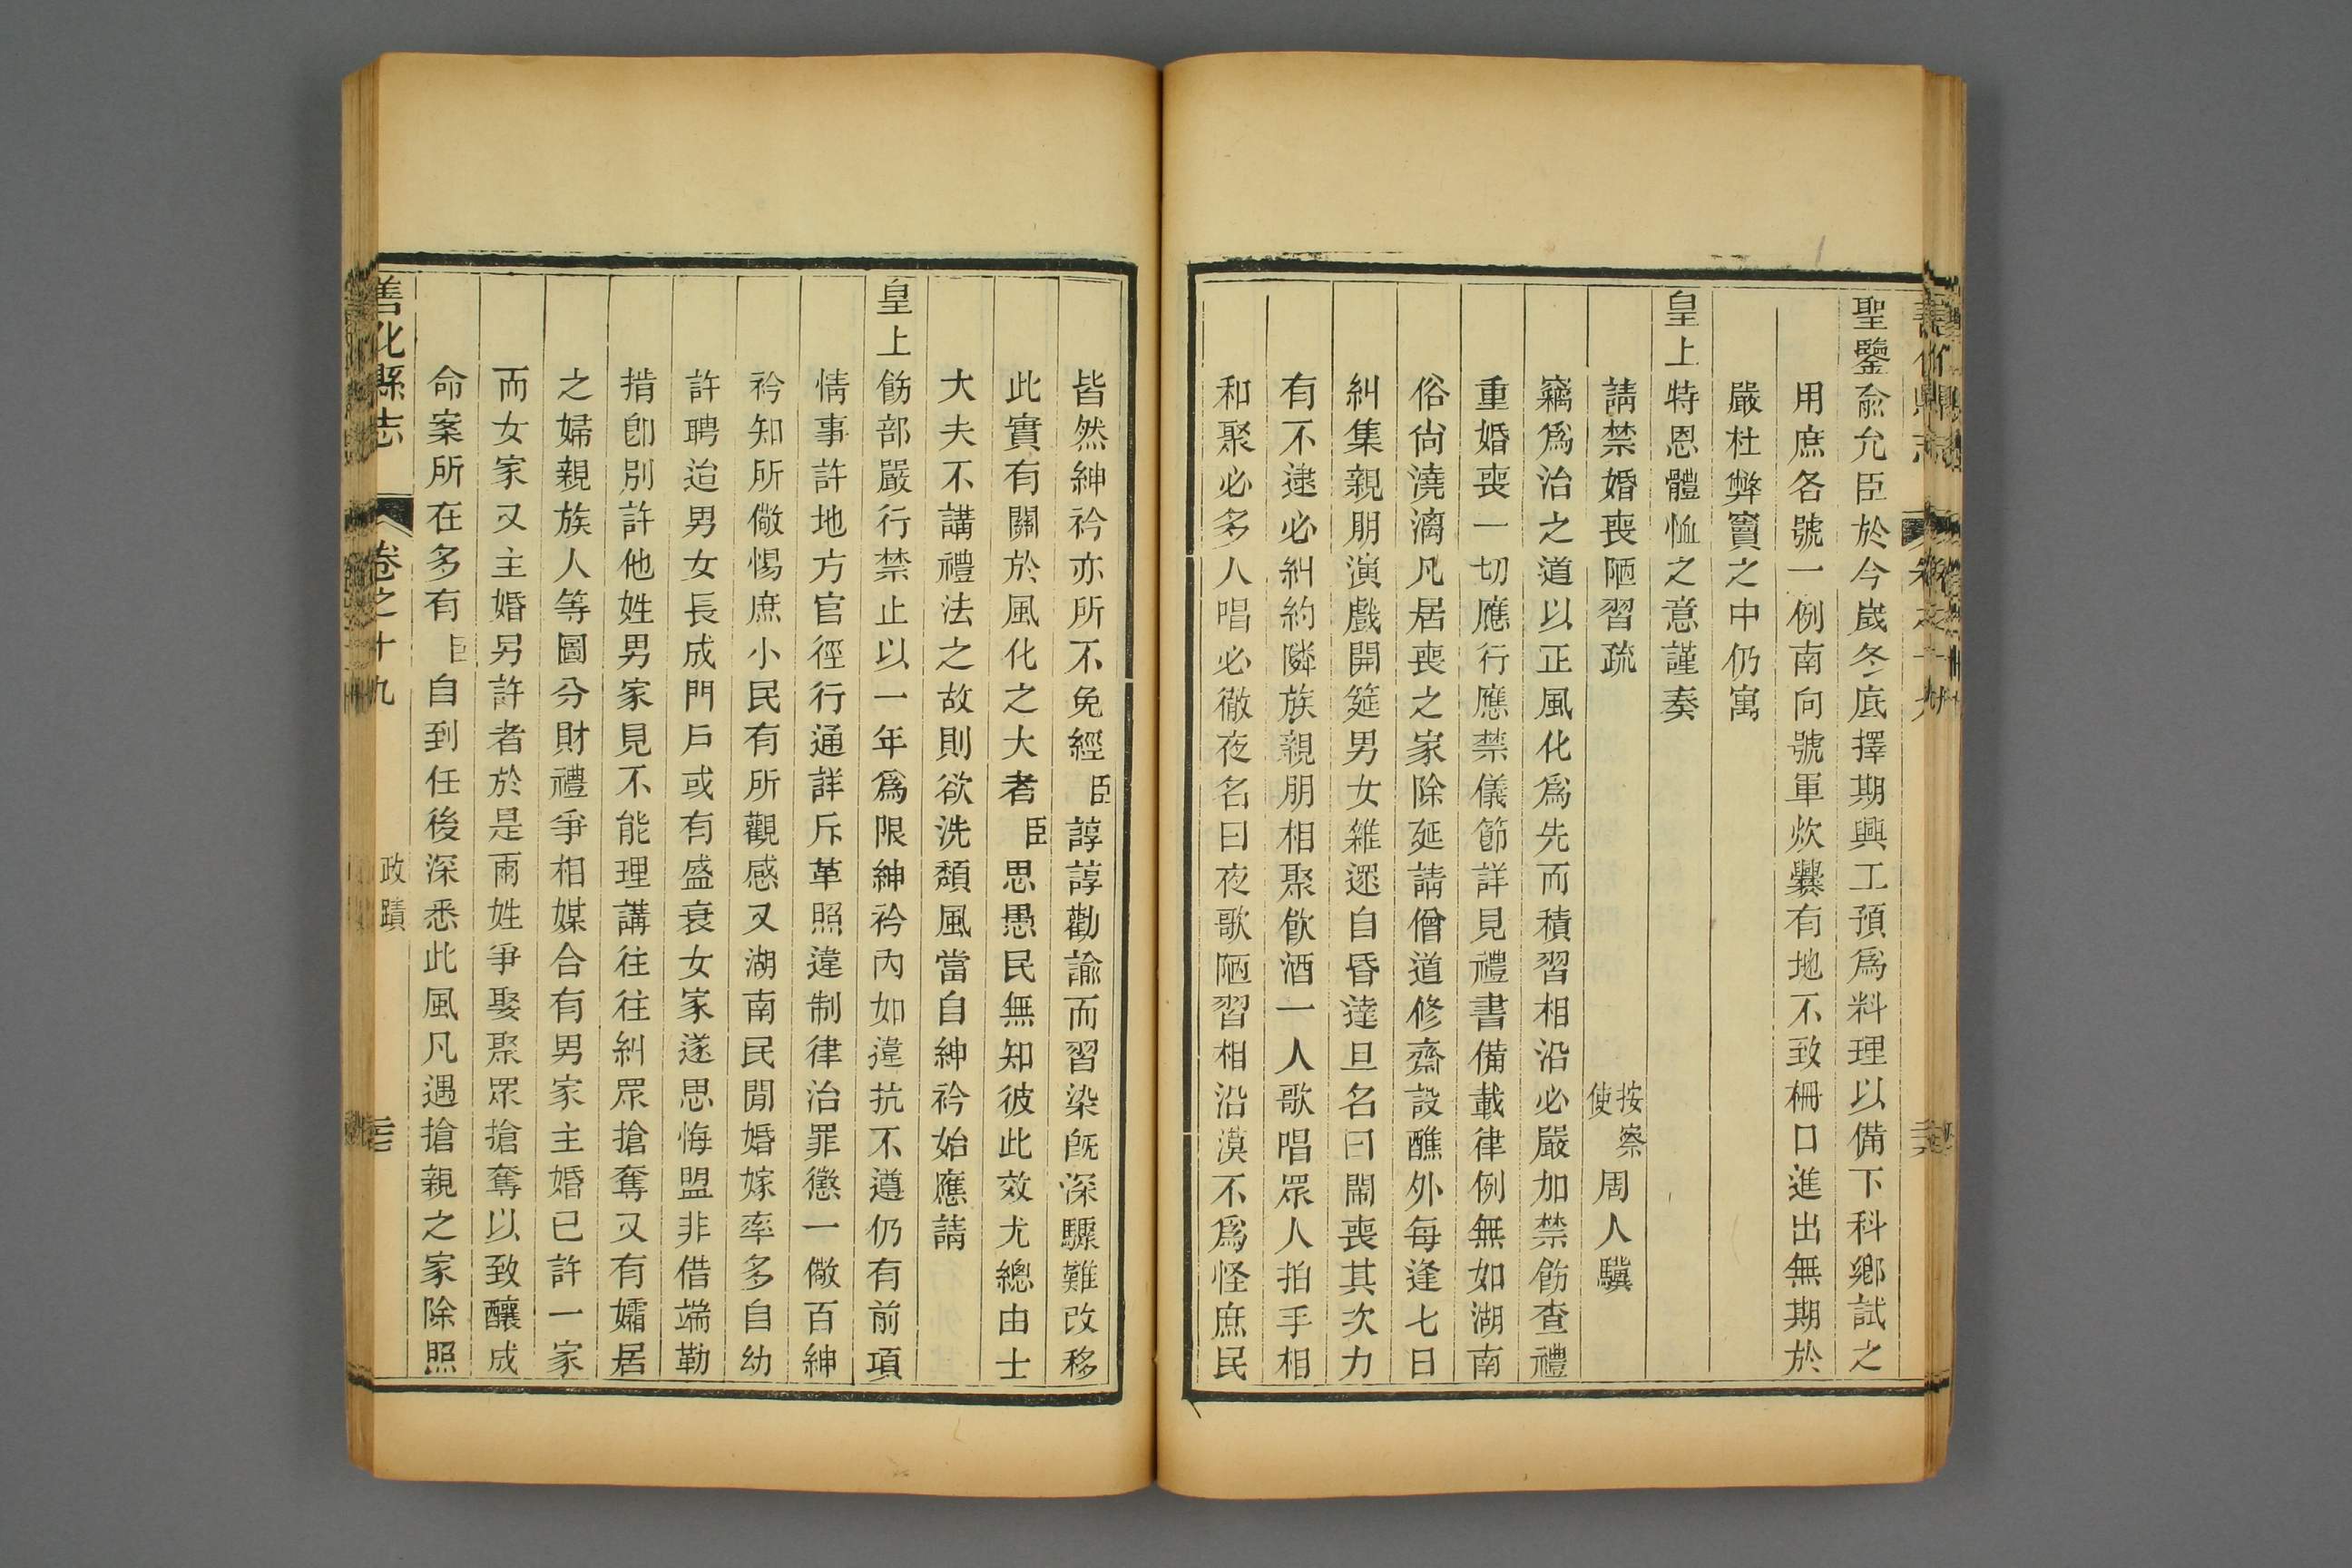 聖鑒俞允臣於今歲冬底擇期興工預爲料理以備下科鄉試之
用庶各號一例南向號軍炊爨有地不致柵口進出無期於
嚴杜弊竇之中仍寓
皇上特恩體恤之意謹奏
請禁婚喪陋習疏 按察使周人驥
竊爲治之道以正風化爲先而積習相沿必嚴加禁飭查禮
重婚喪一切應行應禁儀節詳見禮書備載律例無如湖南
俗尙澆漓凡居喪之家除延請僧道修齋設醮外每逢七日
糾集親朋演戲開筵男女雜遝自昏達旦名曰鬧喪其次力
有不逮必糾約隣族親朋相聚飮酒一人歌唱眾人拍手相
和聚必多人唱必徹夜名曰夜歌陋習相沿漠不爲怪庶民
皆然紳衿亦所不免經臣諄諄勸諭而習染旣深驟難改移
此實有關於風化之大者臣思愚民無知彼此效尤總由士
大夫不講禮法之故則欲洗頹風當自紳衿始應請
皇上飭部嚴行禁止以一年爲限紳衿內如違抗不遵仍有前項
情事許地方官徑行通詳斥革照違制律治罪懲一儆百紳
衿知所儆惕庶小民有所觀感又湖南民閒婚嫁率多自幼
許聘迨男女長成門戶或有盛衰女家遂思悔盟非借端勒
掯卽別許他姓男家見不能理講往往糾眾搶奪又有孀居
之婦親族人等圖分財禮爭相媒合有男家主婚已許一家
而女家又主婚另許者於是兩姓爭娶聚眾搶奪以致釀成
命案所在多有臣自到任後深悉此風凡遇搶親之家除照
善化縣志 卷之十九 政蹟